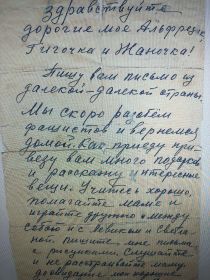 Здравствуйте
дорогие мое Альфредик,
Гигочка и Жаночка!
Пишу вам письмо из
далекой-далекой страны.
Мы скоро разобьем
фашистов и вернемся
домой. Как приеду при-
везу вам много подарков
и расскажу интересные
вещи. Учитесь хорошо,
помогайте маме и
играйте дружно между
собою и с Вовиком и Светла-
ной. Пишите мне письма
с рисунками. Слушайте
и не расстраивайте маму.
До свидания мои хорошие